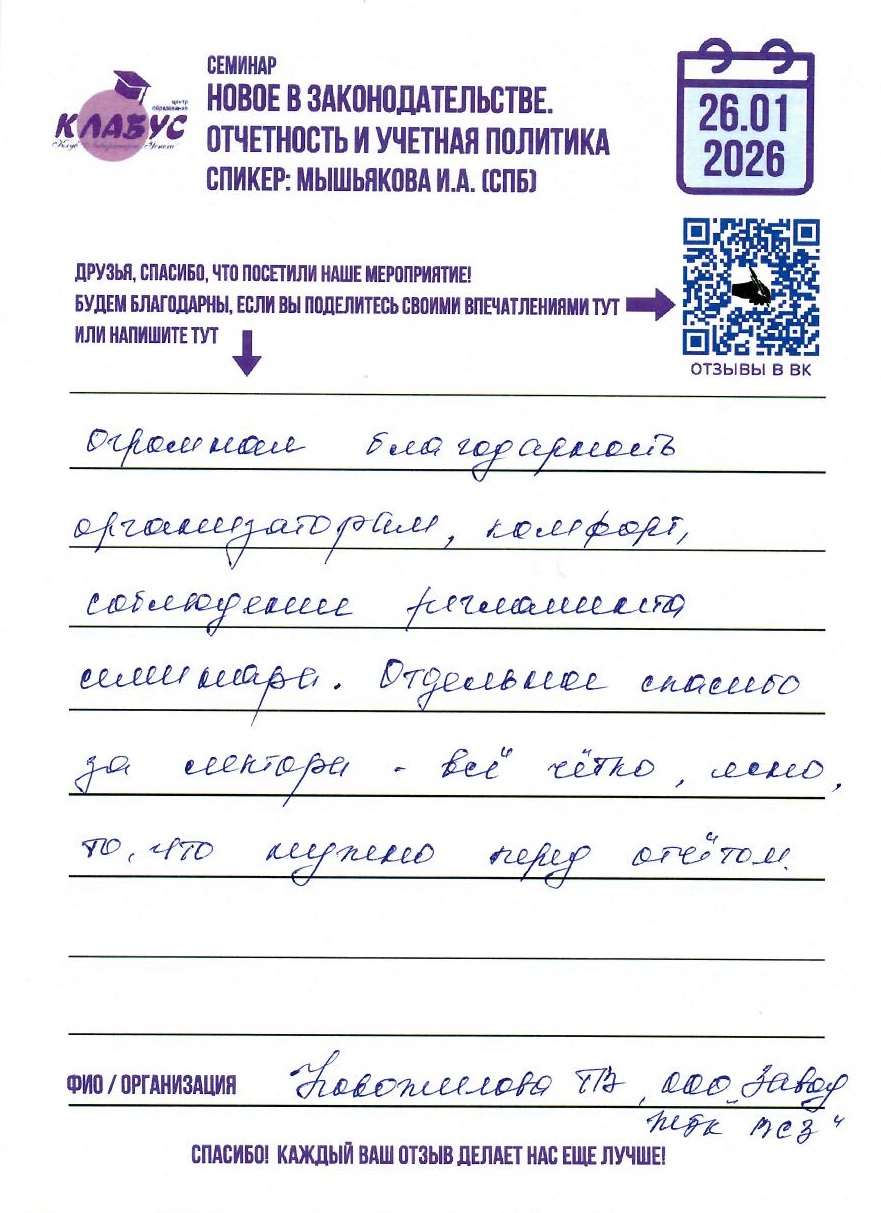 СЕМИНАР
НОВОЕ В ЗАКОНОДАТЕЛЬСТВЕ.
ОТЧЕТНОСТЬ И УЧЕТНАЯ ПОЛИТИКА
СПИКЕР: МЫШЬЯКОВА И.А. (СПБ)
центр
образования
КЛАБУС
26.01
2026
ДРУЗЬЯ, СПАСИБО, ЧТО ПОСЕТИЛИ НАШЕ МЕРОПРИЯТИЕ!
БУДЕМ БЛАГОДАРНЫ, ЕСЛИ ВЫ ПОДЕЛИТЕСЬ СВОИМИ ВПЕЧАТЛЕНИЯМИ ТУТ
ИЛИ НАПИШИТЕ ТУТ
ОТЗЫВЫ В ВК
огромная благодарность
организаторам, комфорт,
соблюдение регламента
семинара. Отдельное спасибо
за лектора - всё чётко, ясно,
то, что нужно перед отчётом.
ФИО / ОРГАНИЗАЦИЯ Новожилова ТВ, ООО „Завод
ВСЗ"
СПАСИБО! КАЖДЫЙ ВАШ ОТЗЫВ ДЕЛАЕТ НАС ЕЩЕ ЛУЧШЕ!